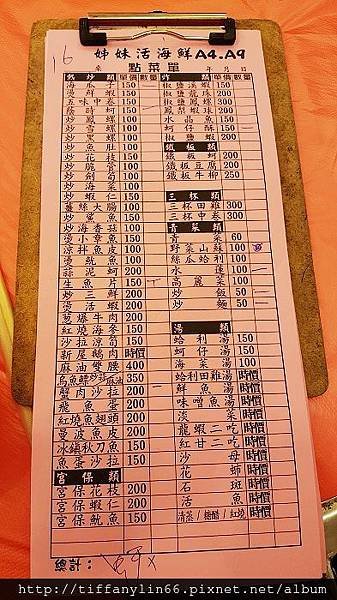 16
姊妹活海鮮A4.A9
點菜單
年 月 日
熱炒類 單價 數量
海瓜子 150
燙鮮蝦 150
五味中卷 150
蔭蚵 100
炒鳳螺 100
炒雪螺 100
炒黑螺 100
炒魚肚 100
炒花枝 150
炒脆管 100
炒劍筍 100
炒海菜 100
炒蝦仁 150
薑絲大腸 100
炒鯊魚 150
炒海香菇 100
燙小章魚 150
涼拌魚皮 100
燙魷魚 100
蒜泥蚵 200
生魚片 150
炒三鮮 200
炒活蝦
蔥爆牛肉 200
紅燒海參 150
沙拉涼筍 150
新屋鵝肉 時價
麻油雙腰 400
350
蟹肉沙拉 200
飛魚蛋 200
紅燒魚翅頭 200
曼波魚皮 200
冰鎮秋刀魚 150
魚蛋沙拉 150
宮保類
宮保花枝 200
宮保蝦仁 200
宮保魷魚 150
總計:
炸類 單價 數量
椒鹽溪蝦 150
椒鹽龍珠 200
椒鹽鳳螺 300
鳳梨蝦球 200
水晶魚 150
蚵仔酥 150
椒鹽蝦 200
鐵板類
鐵板蚵 200
鐵板豆腐 200
鐵板牛柳 250
三杯類
三杯田雞 300
三杯中卷 300
青菜類
青菜 60
野菜山蘇 100
絲瓜蛤利 100
水蓮 100
高麗菜 100
炒飯 50
炒麵 50
湯類
蛤利湯 150
蚵仔湯 150
海菜湯 150
蛤利田雞湯 時價
鮮魚湯 時價
味噌魚湯 時價
淡菜 時價
龍蝦二吃 時價
紅甘二吃 時價
沙母 時價
花蟳 時價
石斑 時價
活魚 時價
清蒸/糖醋/紅燒 時價
http://tiffanylin66.pixnet.net/album